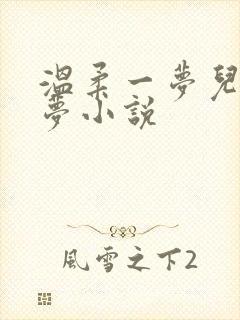 溫柔一夢兒
夢小説
風雪之下2